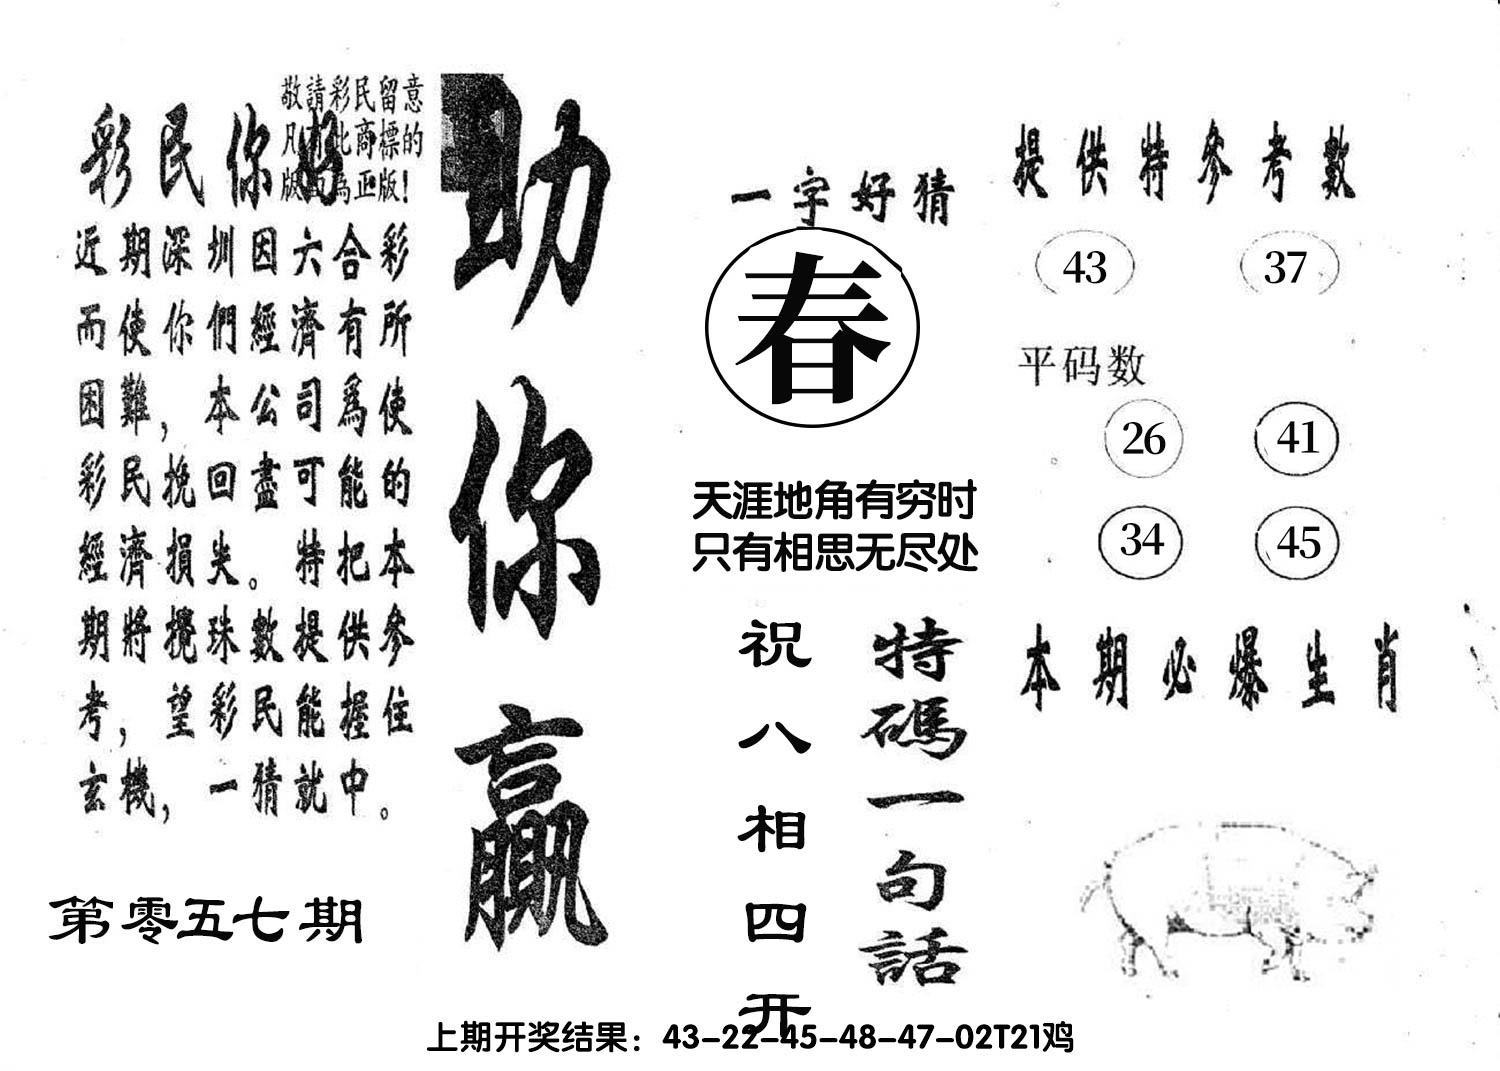 敬請彩民留意
凡有此商標的
版面為正版!
彩民你好
近期深圳因六合彩
而使你們經濟有所
困難，本公司爲使
彩民挽回盡可能的
經濟損失。特把本
期將攪珠數提供參
考，望彩民能握住
玄機，一猜就中。
第零五七期
助你贏
一字好猜
春
天涯地角有穷时
只有相思无尽处
特碼一句話
祝八相四开
提供特參考數
43 37
平码数
26 41
34 45
本期必爆生肖
上期开奖结果：43-22-45-48-47-02T21鸡